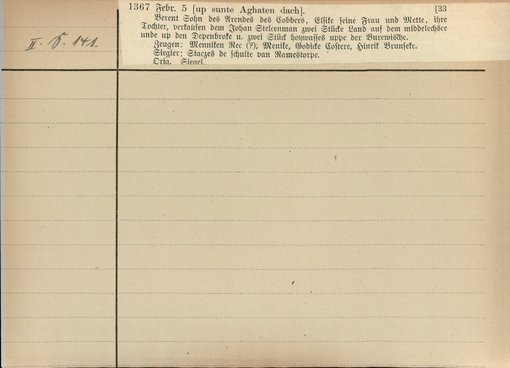 1367 Febr. 5 [up sunte Aghaten dach]. [33
Berent Sohn des Arendes des Cobbers, Elsike seine Frau und Mette, ihre
Tochter, verkaufen dem Johan Stelcenman zwei Stücke Land auf dem middelechsee
unde up den Depenbroke u. zwei Stück hoywasses uppe der Burewisthe.
Zeugen: Menniken Rec (?), Menike, Godicke Costere, Hinrik Brunseke.
Siegler: Staczes de schulte van Ramestorpe.
Orig. Siegel.
II. 141.